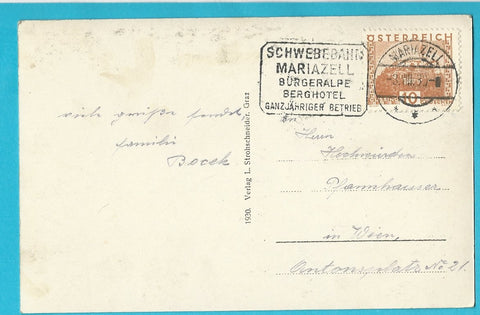 SCHWEBEBAHN
MARIAZELL
BÜRGERALPE
BERGHOTEL
GANZJÄHRIGER BETRIEB
ÖSTERREICH
MARIAZELL
10
viele Grüße sendet
Familie
Bocek
1930. Verlag L. Strohschneider, Graz
An
Herrn
Hochwürden
Pfannhauser
in Wien,
Antonsplatz No 21.